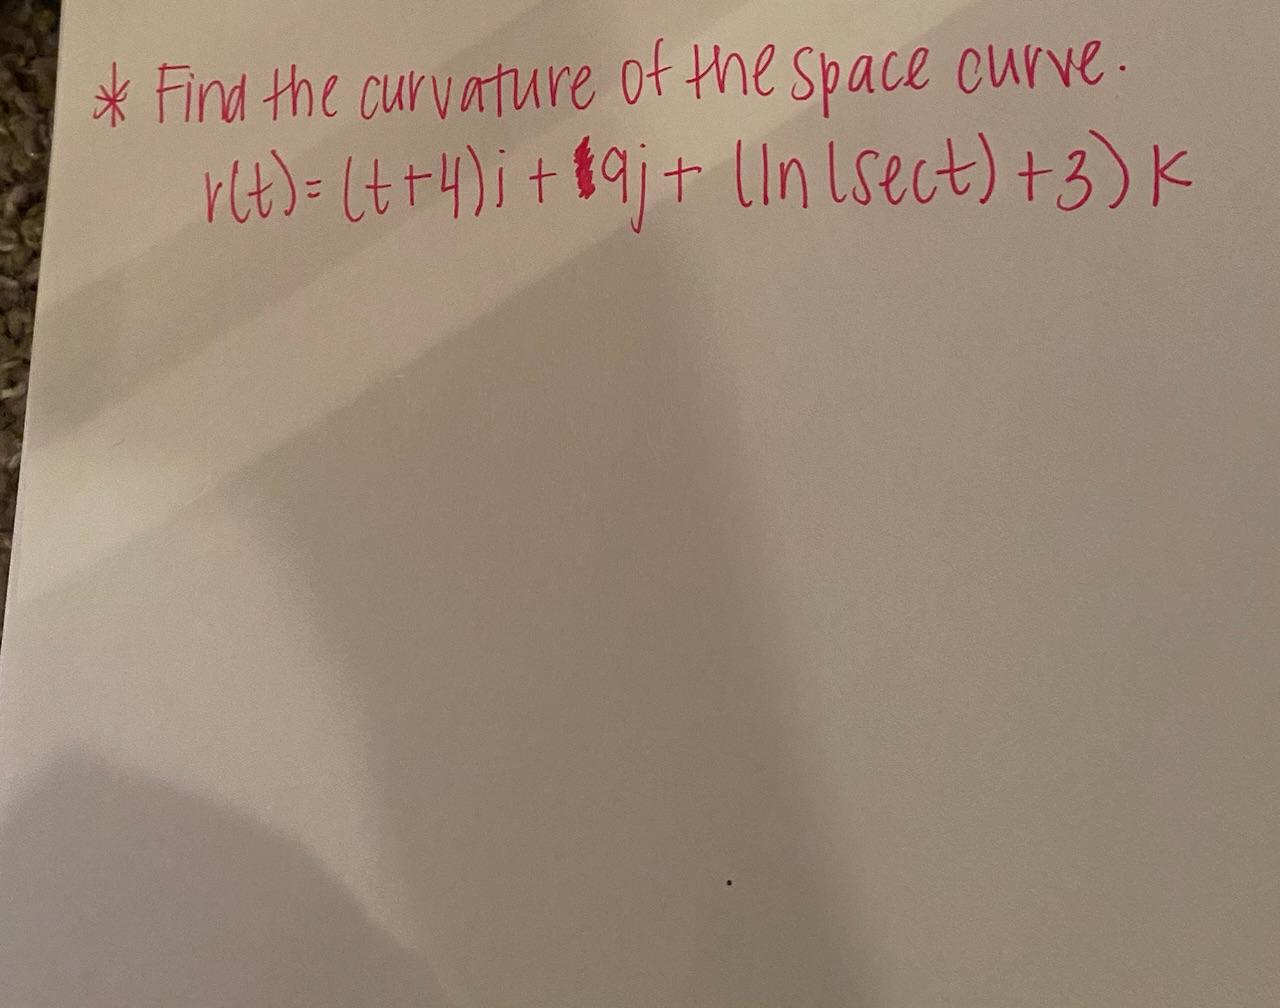 * Find the curvature of the space curve.
r(t)= (t+4)i + 9j + (ln(sect) +3) K